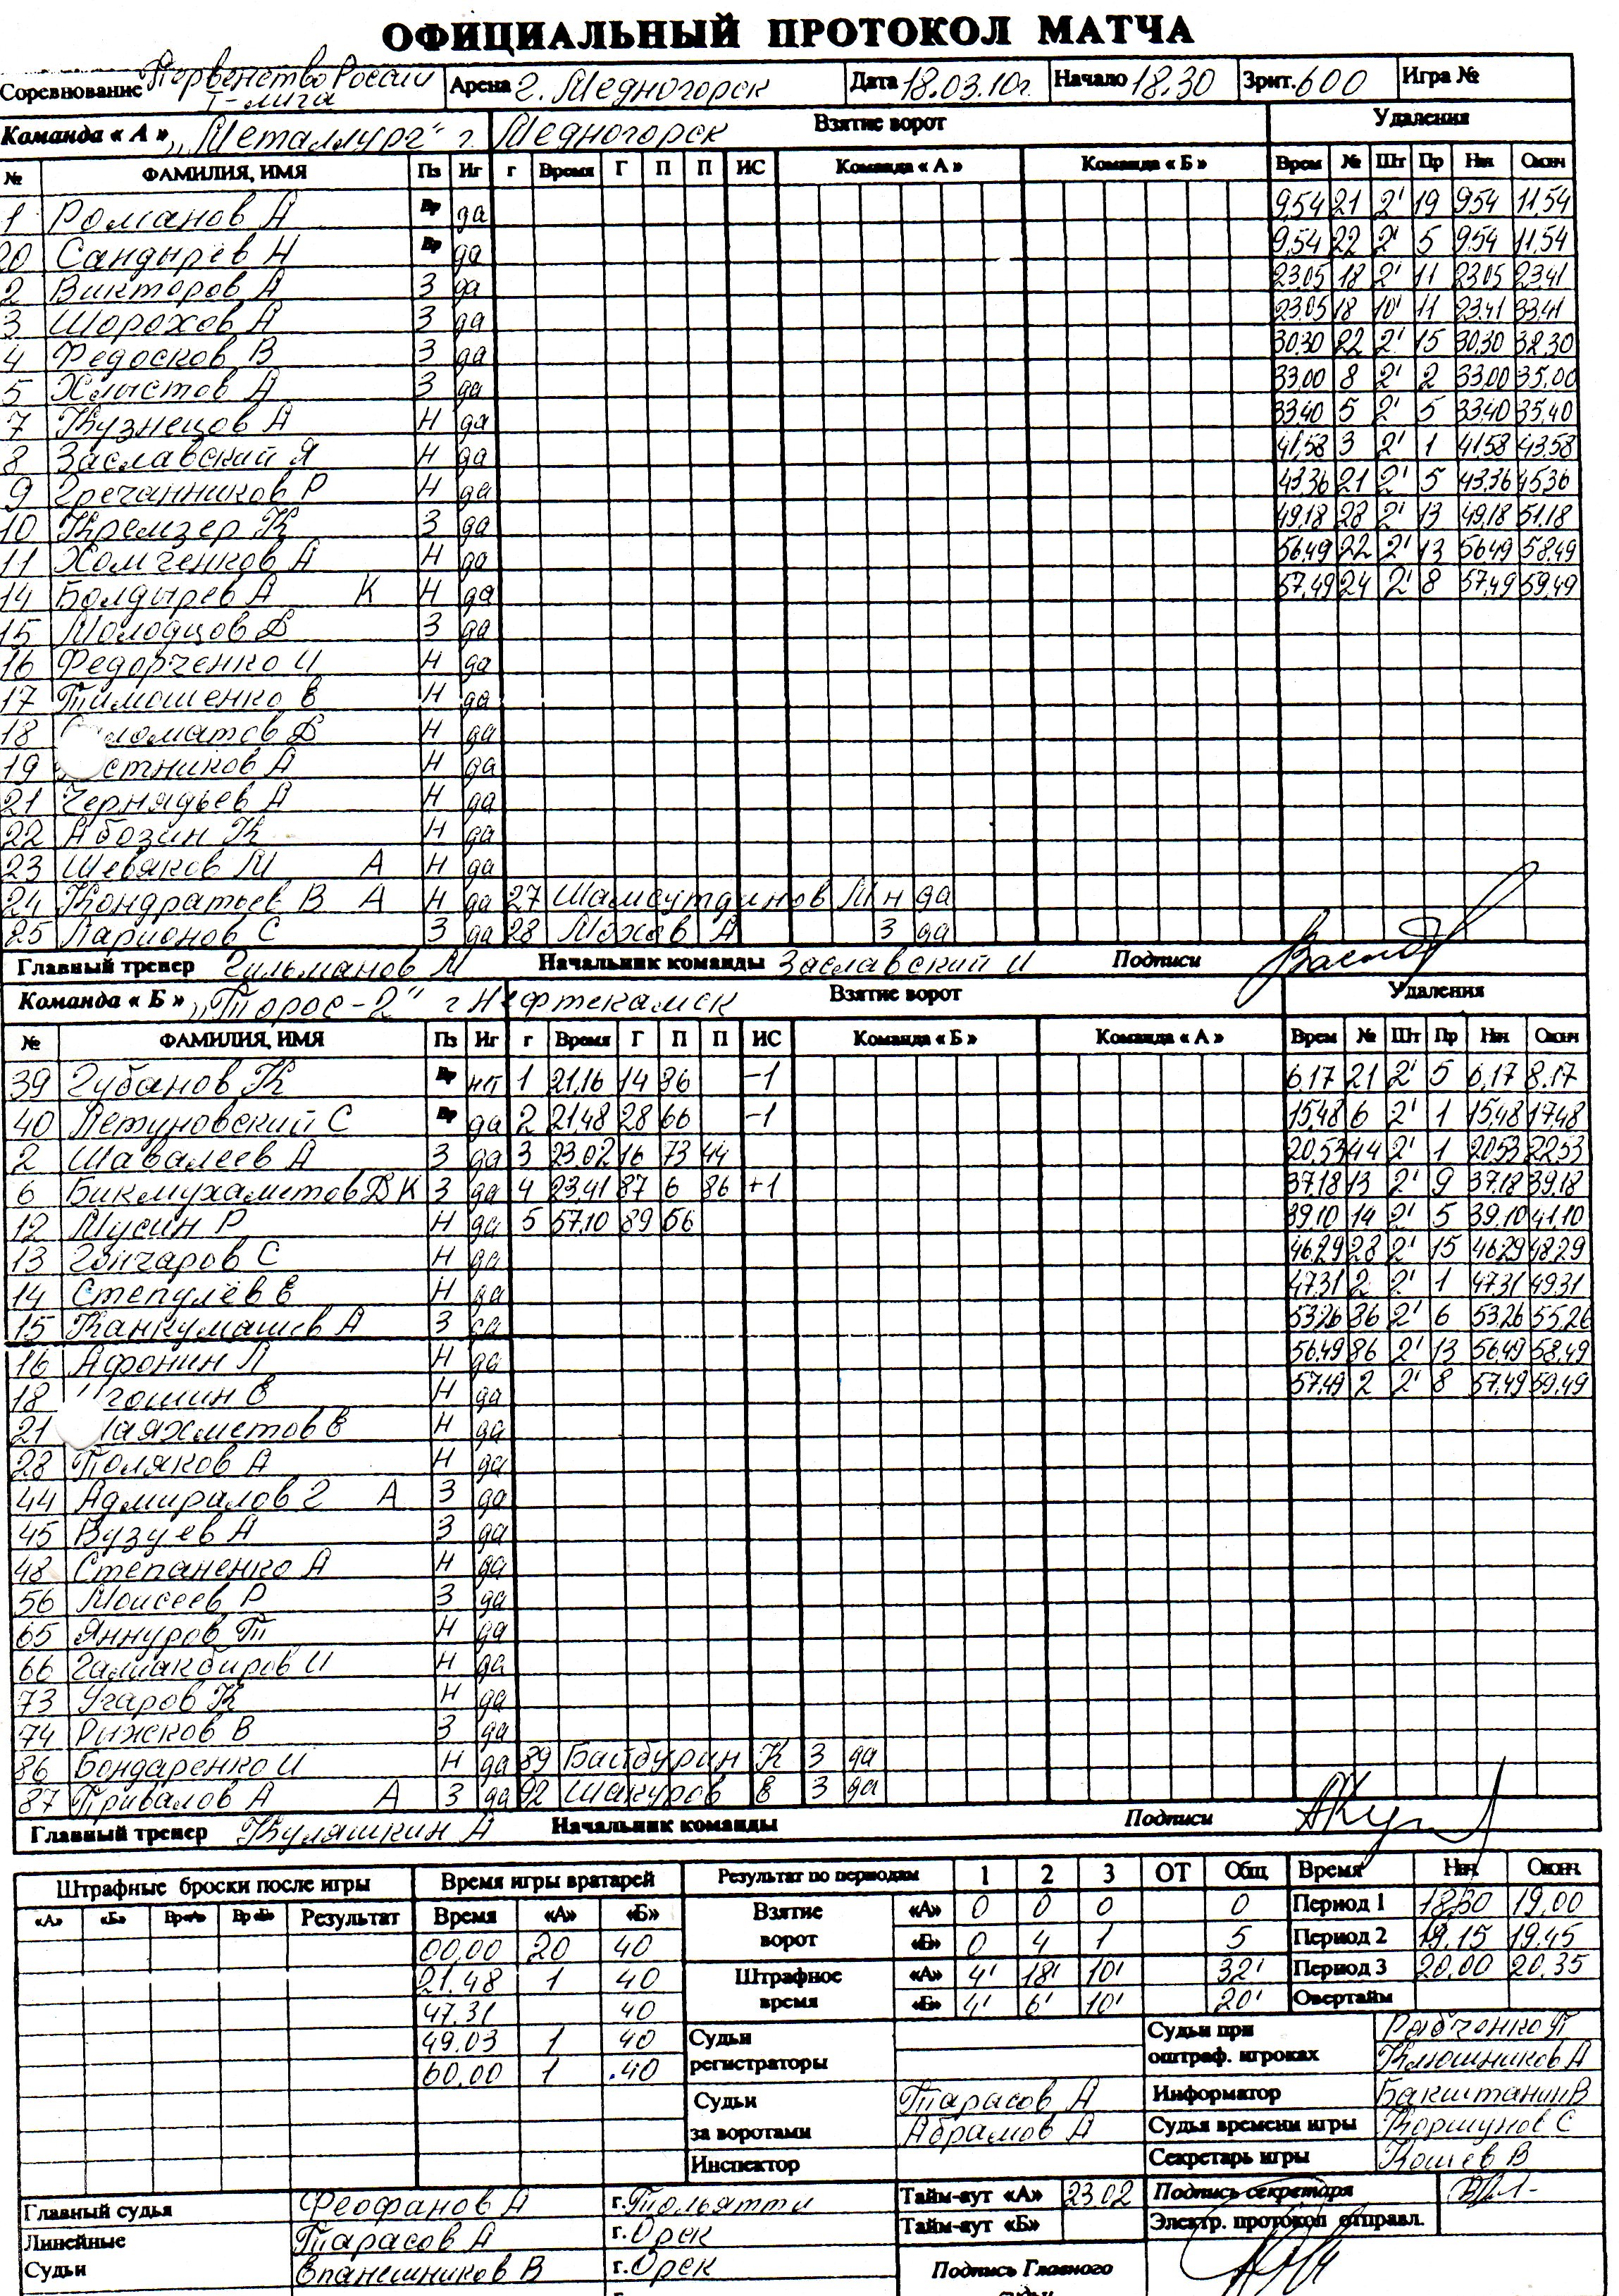 ОФИЦИАЛЬНЫЙ ПРОТОКОЛ МАТЧА
Соревнование Первенство России Т-лига Арена г. Медногорск Дата 18.03.10г. Начало 18.30 Зрит. 600 Игра №
Команда « А » „Металлург" г. Медногорск Взятие ворот Удаления
№ ФАМИЛИЯ, ИМЯ Пз Иг г Время Г П П ИС Команда « А » Команда « Б » Врем № Шт Пр Нач Оконч
1 Романов А Вр да 9.54 21 2' 19 9.54 11.54
20 Сандырев Н Вр да 9.54 22 2' 5 9.54 11.54
2 Викторов А З да 23.05 18 2' 11 23.05 23.41
3 Шорохов А З да 23.05 18 10' 11 23.41 33.41
4 Федосков В З да 30.30 22 2' 15 30.30 32.30
5 Хлыстов А З да 33.00 8 2' 2 33.00 35.00
7 Кузнецов А Н да 33.40 5 2' 5 33.40 35.40
8 Заславский Я Н да 41.58 3 2' 1 41.58 43.58
9 Гречанников Р Н да 43.36 21 2' 5 43.36 45.36
10 Кремзер К З да 49.18 28 2' 13 49.18 51.18
11 Хомченков А Н да 56.49 22 2' 13 56.49 58.49
14 Болдырев А К Н да 57.49 24 2' 8 57.49 59.49
15 Молодцов Д З да
16 Федорченко И Н да
17 Тимошенко Е Н да
18 Д Н да
19 А Н да
21 Чернядьев А Н да
22 Абозин К Н да
23 Шевяков М А Н да
24 Кондратьев В А Н да 27 Шамсутдинов М Н да
25 Ларионов С З да 28 Мохов А З да
Главный тренер Гильманов М Начальник команды Заславский И Подписи
Команда « Б » „Торос-2" г Нефтекамск Взятие ворот Удаления
№ ФАМИЛИЯ, ИМЯ Пз Иг г Время Г П П ИС Команда « Б » Команда « А » Врем № Шт Пр Нач Оконч
39 Губанов К Вр нет 1 21.16 14 86 -1 6.17 21 2' 5 6.17 8.17
40 Петуновский С Вр да 2 21.48 28 66 -1 15.48 6 2' 1 15.48 17.48
2 Шавалеев А З да 3 23.02 16 73 44 20.53 44 2' 1 20.53 22.53
6 Бикмухаметов Д К З да 4 23.41 87 6 86 +1 37.18 13 2' 9 37.18 39.18
12 Мусин Р Н да 5 57.10 89 56 39.10 14 2' 5 39.10 41.10
13 Гончаров С Н да 46.29 28 2' 15 46.29 48.29
14 Степулёв Е Н да 47.31 2 2' 1 47.31 49.31
15 Канкумашев А З да 53.26 86 2' 6 53.26 55.26
16 Афонин Л Н да 56.49 86 2' 13 56.49 58.49
18 Е Н да 57.49 2 2' 8 57.49 59.49
21 Е Н да
28 Поляков А Н да
44 Адмиралов Г А З да
45 Вузуев А З да
48 Степаненко А Н да
56 Моисеев Р З да
65 Яннуров Т Н да
66 Галиакбиров И Н да
73 Угаров К Н да
74 Рыжков В З да
86 Бондаренко И Н да 89 Байбурин К З да
87 Привалов А А З да 92 Шакуров Е З да
Главный тренер Куляшкин А Начальник команды Подписи
Штрафные броски после игры Время игры вратарей Результат по периодам 1 2 3 ОТ Общ Время Нач Оконч
«А» «Б» Вр«А» Вр«Б» Результат Время «А» «Б» Взятие ворот «А» 0 0 0 0 Период 1 18.30 19.00
00.00 20 40 «Б» 0 4 1 5 Период 2 19.15 19.45
21.48 1 40 Штрафное время «А» 4' 18' 10' 32' Период 3 20.00 20.35
47.31 40 «Б» 4' 6' 10' 20' Овертайм
49.03 1 40 Судьи регистраторы Судьи при оштраф. игроках Рябченко Т
60.00 1 40 Клюшников А
Судьи за воротами Тарасов А Информатор Бакштанин В
Абрамов А Судья времени игры Коршунов С
Инспектор Секретарь игры Кошев В
Главный судья Феофанов А г. Тольятти Тайм-аут «А» 23.02 Подпись секретаря
Линейные Тарасов А г. Орск Тайм-аут «Б» Электр. протокол отправл.
Судьи Епанешников В г. Орск Подпись Главного
судьи